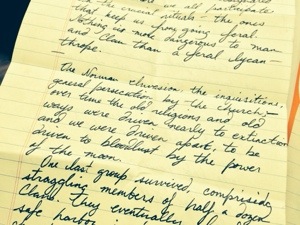 we all participate
the crucial rituals – the ones
that keep us from going feral.
Nothing is more dangerous to man
and Clan than a feral lycan-
thrope.
The Norman invasion, the inquisitions,
general persecution by the Church –
over time the old religions and old
ways were driven nearly to extinction
and we were driven apart, to be
driven to bloodlust by the power
of the moon.
One last group survived, comprising
straggling members of half a dozen
Clans. They eventually
safe harbor